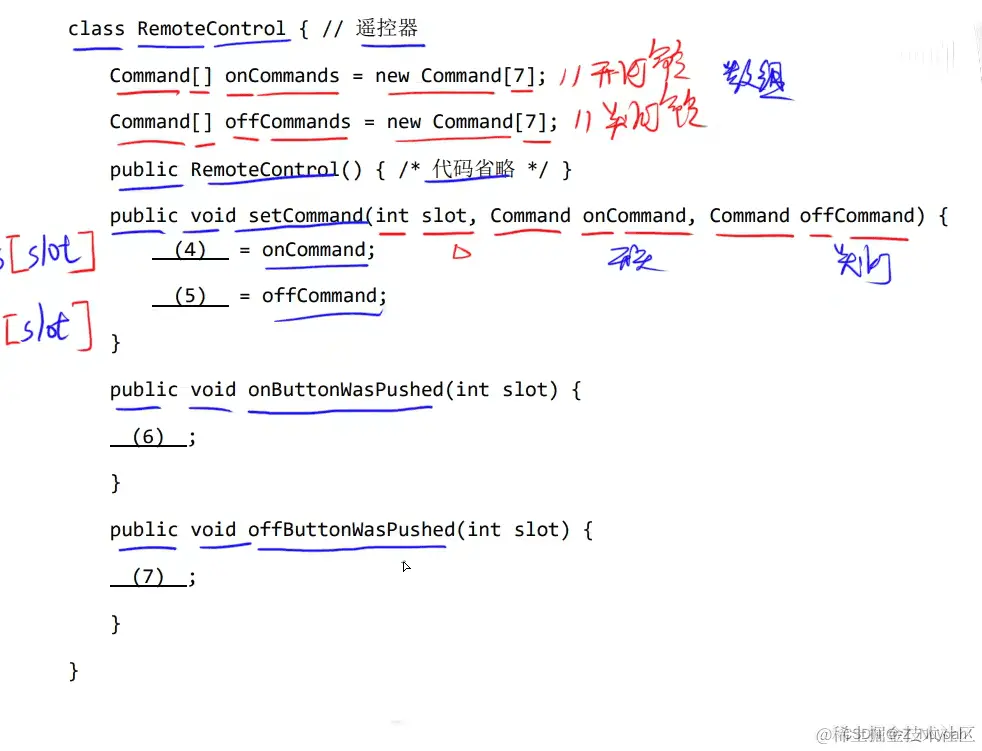 class RemoteControl { // 遥控器
Command[] onCommands = new Command[7]; // 开门命令 数组
Command[] offCommands = new Command[7]; // 关闭命令
public RemoteControl() { /* 代码省略 */ }
public void setCommand(int slot, Command onCommand, Command offCommand) {
s[slot] (4) = onCommand; 关闭
[slot] (5) = offCommand;
}
public void onButtonWasPushed(int slot) {
(6) ;
}
public void offButtonWasPushed(int slot) {
(7) ;
}
}
@稀土掘金技术社区